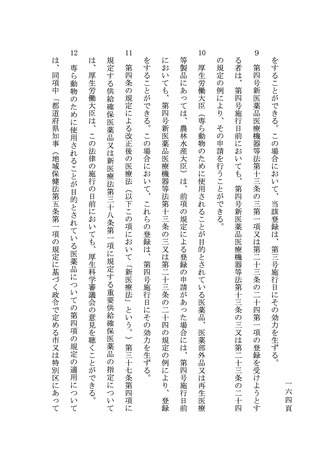 をすることができる。この場合において、当該登録は、第三号施行日にその効力を生ずる。
9 第四号新医薬品医療機器等法第十三条の三第一項又は第二十三条の二十四第一項の登録を受けようとす
る者は、第四号施行日前においても、第四号新医薬品医療機器等法第十三条の三又は第二十三条の二十四
の規定の例により、その申請を行うことができる。
10 厚生労働大臣（専ら動物のために使用されることが目的とされている医薬品、医薬部外品又は再生医療
等製品にあっては、農林水産大臣）は、前項の規定による登録の申請があった場合には、第四号施行日前
においても、第四号新医薬品医療機器等法第十三条の三又は第二十三条の二十四の規定の例により、登録
をすることができる。この場合において、これらの登録は、第四号施行日にその効力を生ずる。
11 第四条の規定による改正後の医療法（以下この項において「新医療法」という。）第三十七条第四項に
規定する供給確保医薬品又は新医療法第三十八条第一項に規定する重要供給確保医薬品の指定について
は、厚生労働大臣は、この法律の施行の日前においても、厚生科学審議会の意見を聴くことができる。
12 専ら動物のために使用されることが目的とされている医薬品についての第四項の規定の適用について
は、同項中「都道府県知事（地域保健法第五条第一項の規定に基づく政令で定める市又は特別区にあって
一六四頁